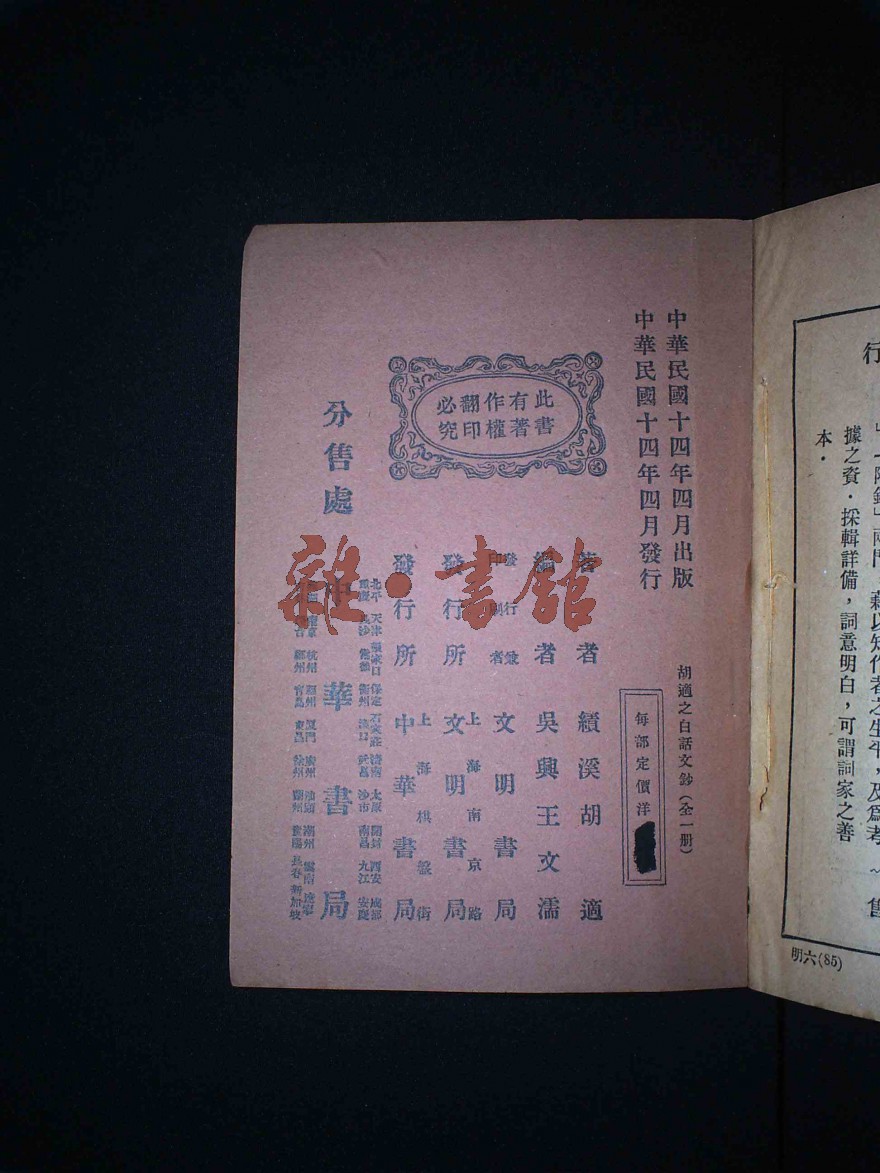 行
據之資·採輯詳備，詞意明白，可謂詞家之善
本·
明六(85)
中華民國十四年四月出版
中華民國十四年四月發行
胡適之白話文鈔（全一册）
每部定價洋
此書
有著
作權
翻印
必究
著者 績溪胡適
編者 吳興王文濡
發行兼
印刷者
文明書局
上海南京路
發行所 文明書局
上海棋盤街
發行所 中華書局
分售處
北平 天津 張家口 保定 石家莊 濟南 太原 開封 西安 成都
長沙 常德 衡州 漢口 武昌 沙市 南昌 九江 安慶
中華書局
南京 杭州 廈門 廣州 汕頭 潮州 雲南
徐州 蘭州 長春 新加坡
雜·書館